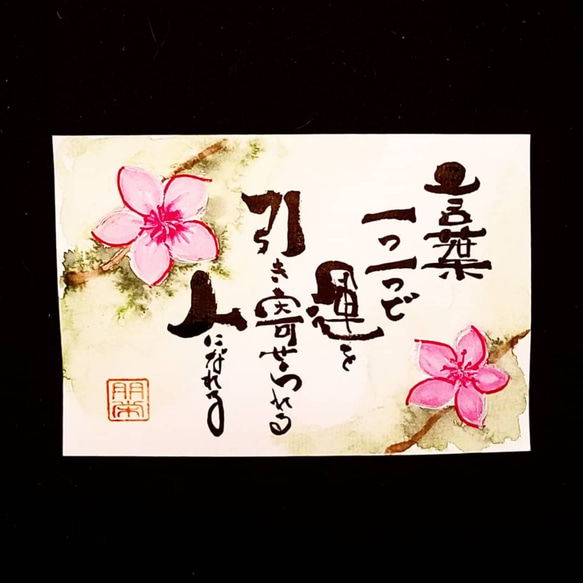 言葉
一つ一つで
運を
引き寄せられる
人になれる